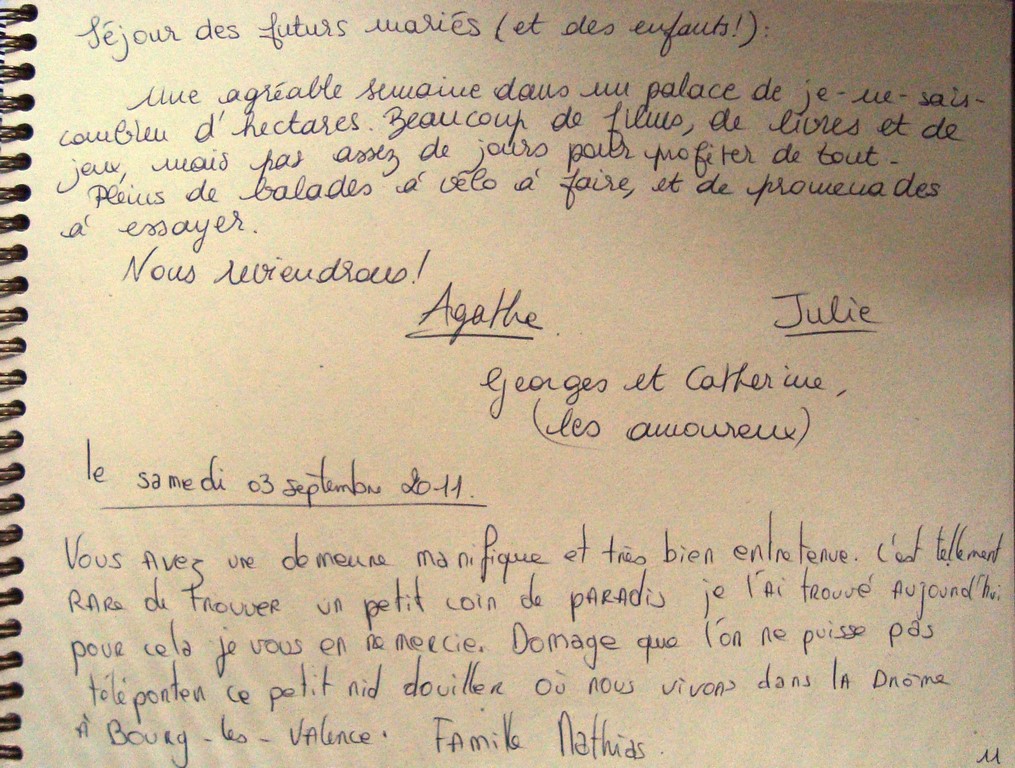 Séjour des futurs mariés (et des enfants!):
Une agréable semaine dans un palace de je-ne-sais-
combien d'hectares. Beaucoup de films, de livres et de
jeux, mais pas assez de jours pour profiter de tout.
Pleins de balades à vélo à faire, et de promenades
à essayer.
Nous reviendrons!
Agathe. Julie
Georges et Catherine,
(les amoureux)
le samedi 03 septembre 2011.
Vous Avez une demeure manifique et très bien entretenue. C'est tellement
RARe de Trouver un petit coin de pARADis je l'Ai trouvé Aujourd'hui
pour cela je vous en remercie. Domage que l'on ne puisse pas
téléporter ce petit nid douiller où nous vivons dans lA Drôme
À Bourg-les-Valence. FAmille Mathias.
11